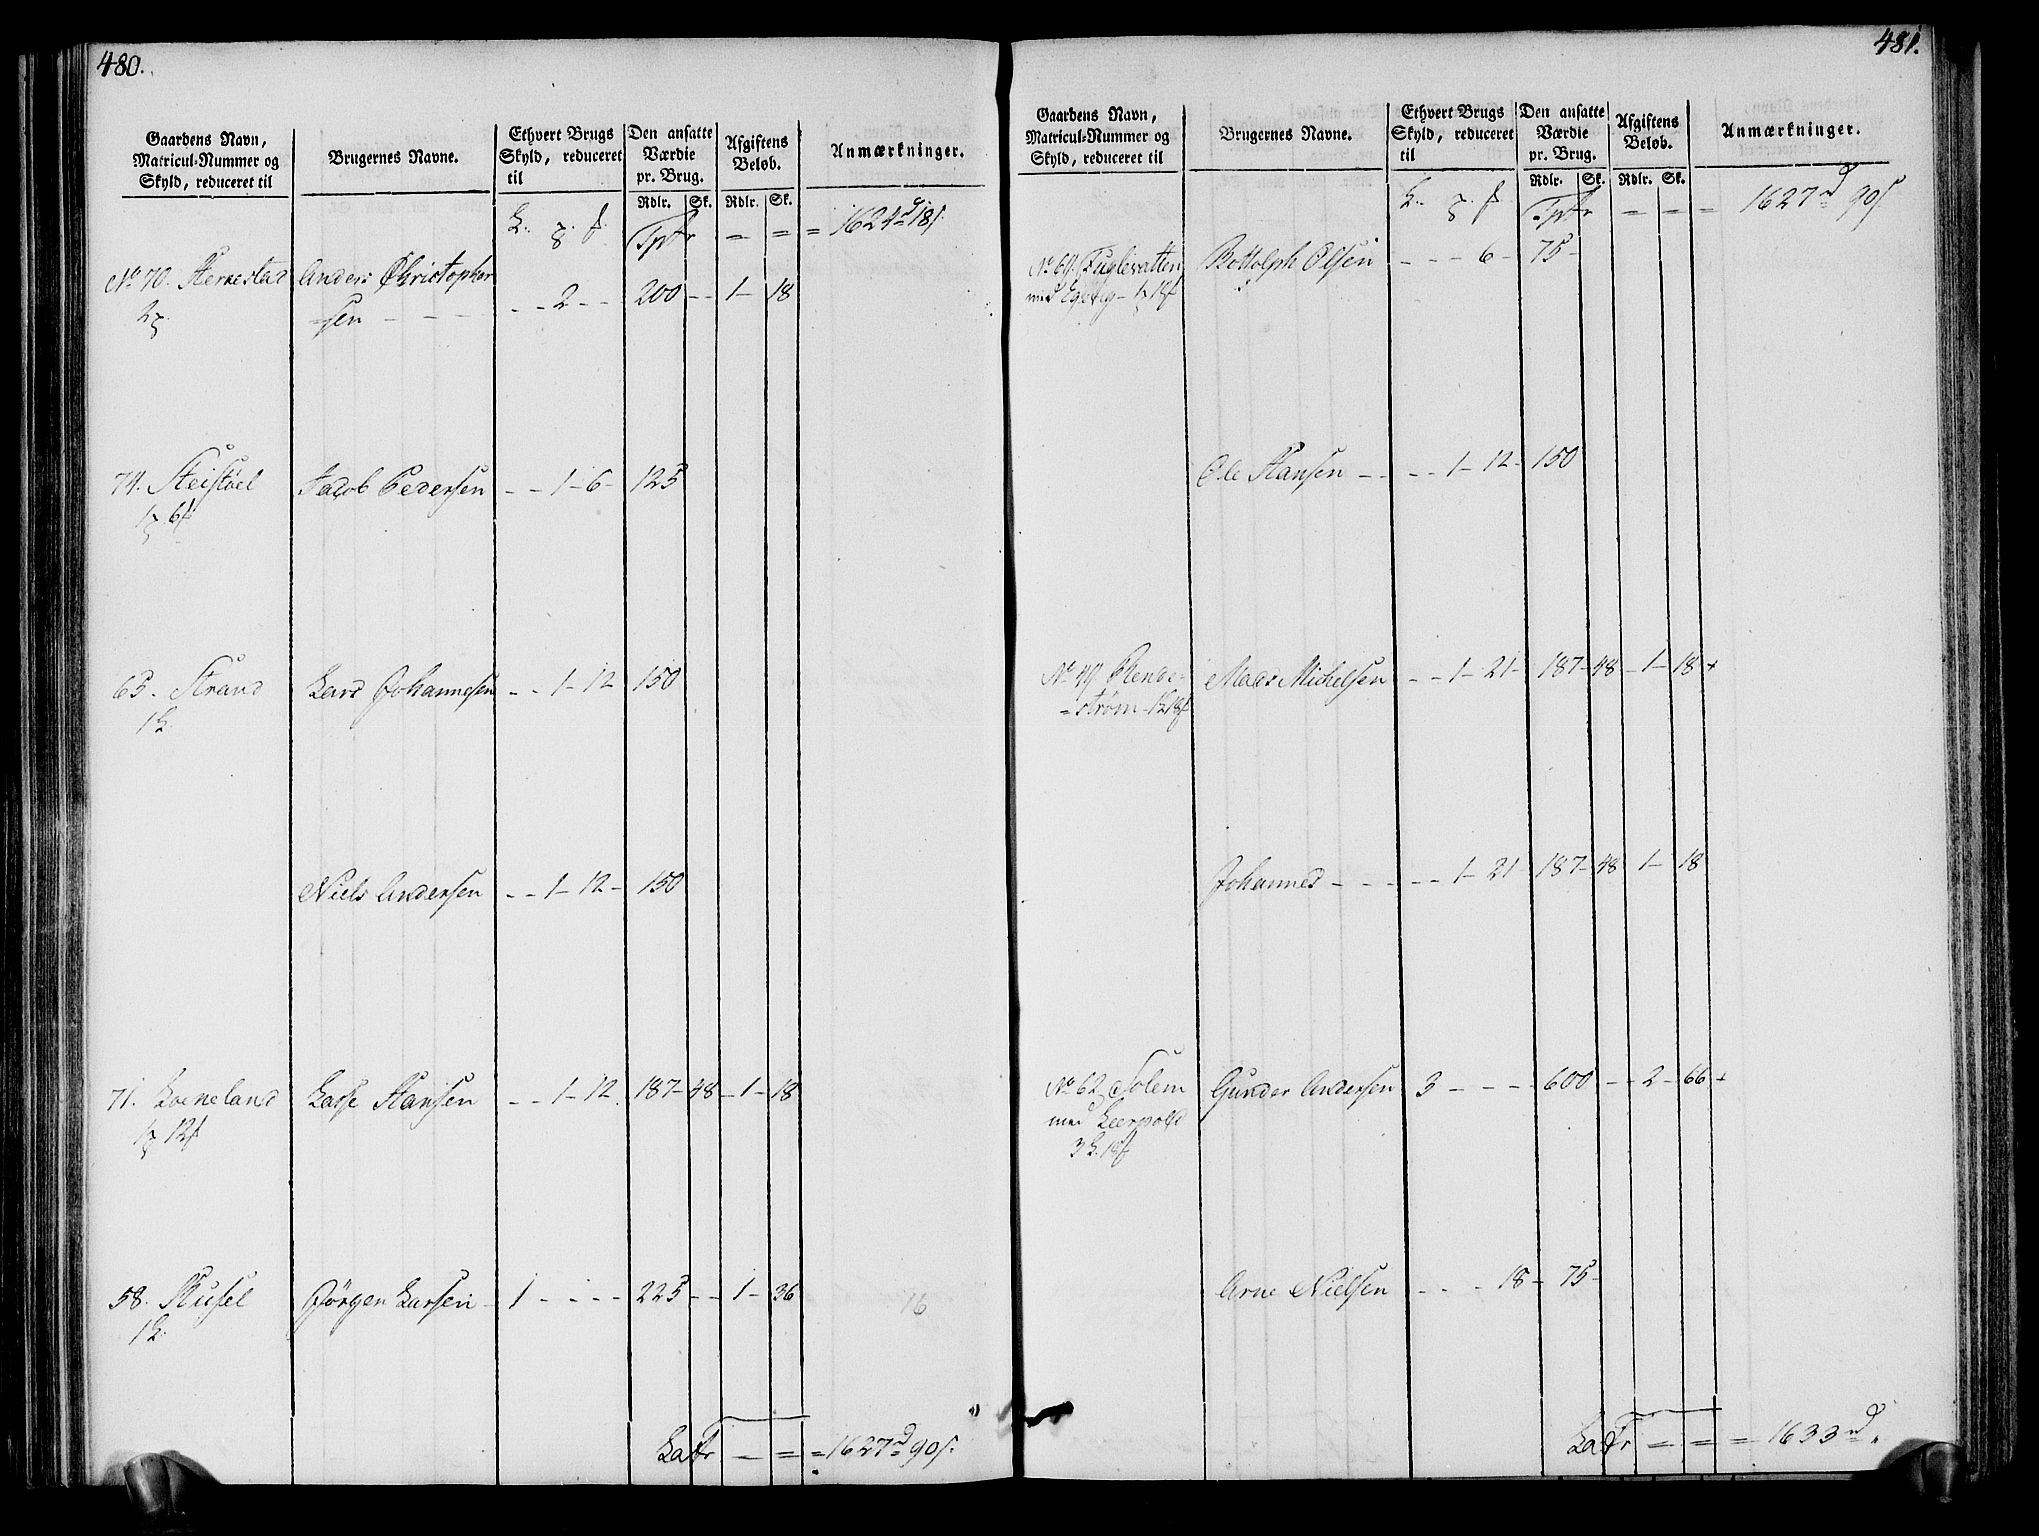 480.
Gaardens Navn,
Matricul-Nummer og
Skyld, reduceret til
Brugernes Navne.
Ethvert Brugs
Skyld, reduceret
til
Den ansatte
Værdie
pr. Brug.
Afgiftens
Beløb.
Anmærkninger.
Rdlr. Sk. Rdlr. Sk.
Tpfr = = = 1624d 18s
No 70. Hernestad Anders Christopher
2 sen - - - - 2 - - 200 - - 1 - 18
74. Heistøel Jacob Pedersen - - 1 - 6 - 125
1 6
65. Strand Lars Johannesen - - 1 - 12 150
1
Niels Andersen - - 1 - 12 - 150
71. Loeneland Lasse Hansen - - 1 - 12. 187 - 48 - 1 - 18
1 12
58. Husel Jörgen Larsen - 1 - - - - 225 - - 1 - 36
1
16
Latr - = = 1627d 90s.
481.
Gaardens Navn,
Matricul-Nummer og
Skyld, reduceret til
Brugernes Navne.
Ethvert Brugs
Skyld, reduceret
til
Den ansatte
Værdie
pr. Brug.
Afgiftens
Beløb.
Anmærkninger.
Rdlr. Sk. Rdlr. Sk.
Tpfr = = = 1627d 90s
No 69. Fuglevatten Bottolph Olsen - - - 6 - 75 -
med 1 18
Ole Hansen - - - - 1 - 12 - 150
No 49. Rende- Mads Michelsen - - 1 - 21 - 187 - 48 - 1 - 18 +
=strøm 18
Johannes - - - - - 1 - 21 - 187 - 48 - 1 - 18
No 62. Solem Gunder Andersen 3 - - - - 600 - - 2 - 66 +
med
3 18
Arne Nielsen - - - 18 - 75 -
Latr = = = 1633d